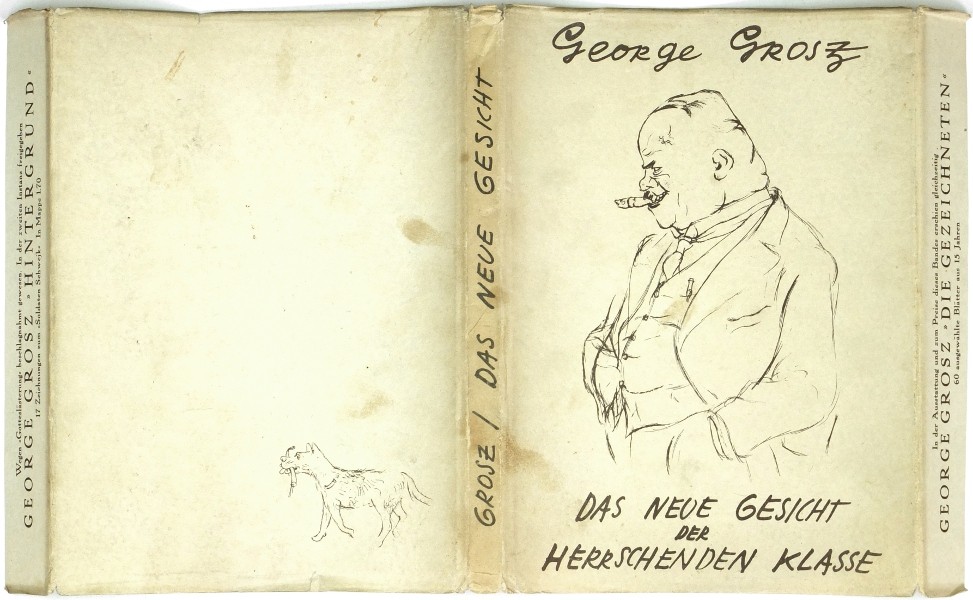 Wegen »Gotteslästerung« beschlagnahmt gewesen. In der zweiten Instanz freigegeben
GEORGE GROSZ »HINTERGRUND«
17 Zeichnungen zum »Soldaten Schwejk« In Mappe 1.70
GROSZ / DAS NEUE GESICHT
George Grosz
DAS NEUE GESICHT
DER
HERRSCHENDEN KLASSE
In der Ausstattung und zum Preise dieses Bandes erschien gleichzeitig
GEORGE GROSZ »DIE GEZEICHNETEN«
60 ausgewählte Blätter aus 15 Jahren